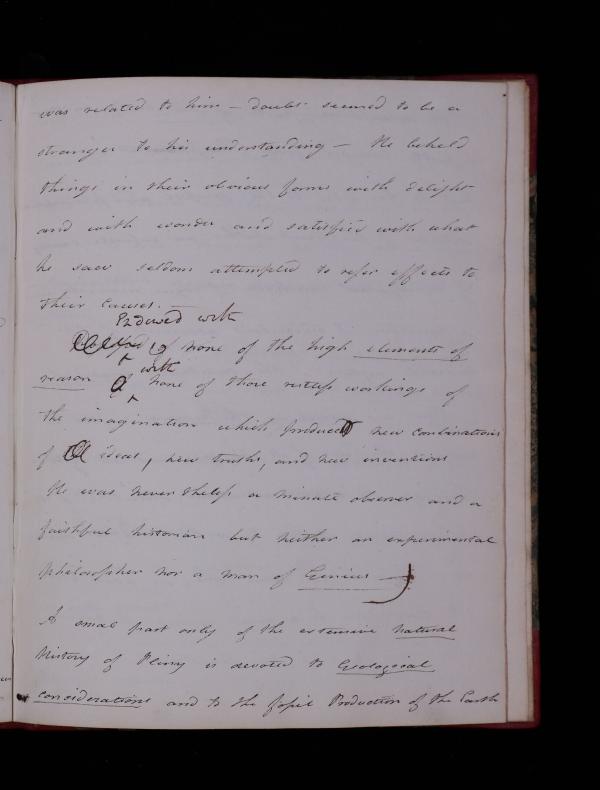 was related to him – doubt seemed to be a
stranger to his understanding – He beheld
things in their obvious forms with delight
and with wonder and satisfied with what
he saw seldom attempted to refer effects to
their causes. –
Endowed with
of none of the high elements of
with
reason of none of those restless workings of
the imagination which produced new combinations
of ideas, new truths, and new inventions
He was nevertheless a minute observer and a
faithful historian but neither an experimental
philosopher nor a man of Genius –
A small part only of the extensive Natural
History of Pliny is devoted to Geological
considerations and to the fossil Production of the Earth